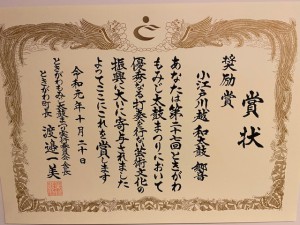 賞状
奨励賞
小江戸川越 和太鼓 響
あなたは第二十七回ときがわ
もみじ太鼓まつりにおいて
優秀なる打奏を行ない芸術文化の
振興に大いに寄与されました
よってここにこれを賞します
令和元年十月二十日
ときがわもみじ太鼓まつり実行委員会会長
ときがわ町長 渡邉一美